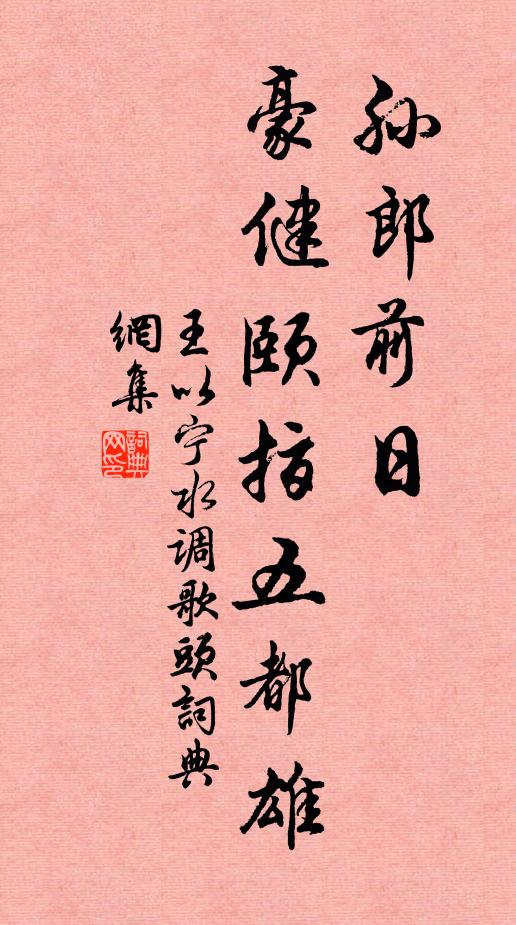 孙郎前日
豪健颐指五都雄
王以宁水调歌头詞典
網集
詞典
网印